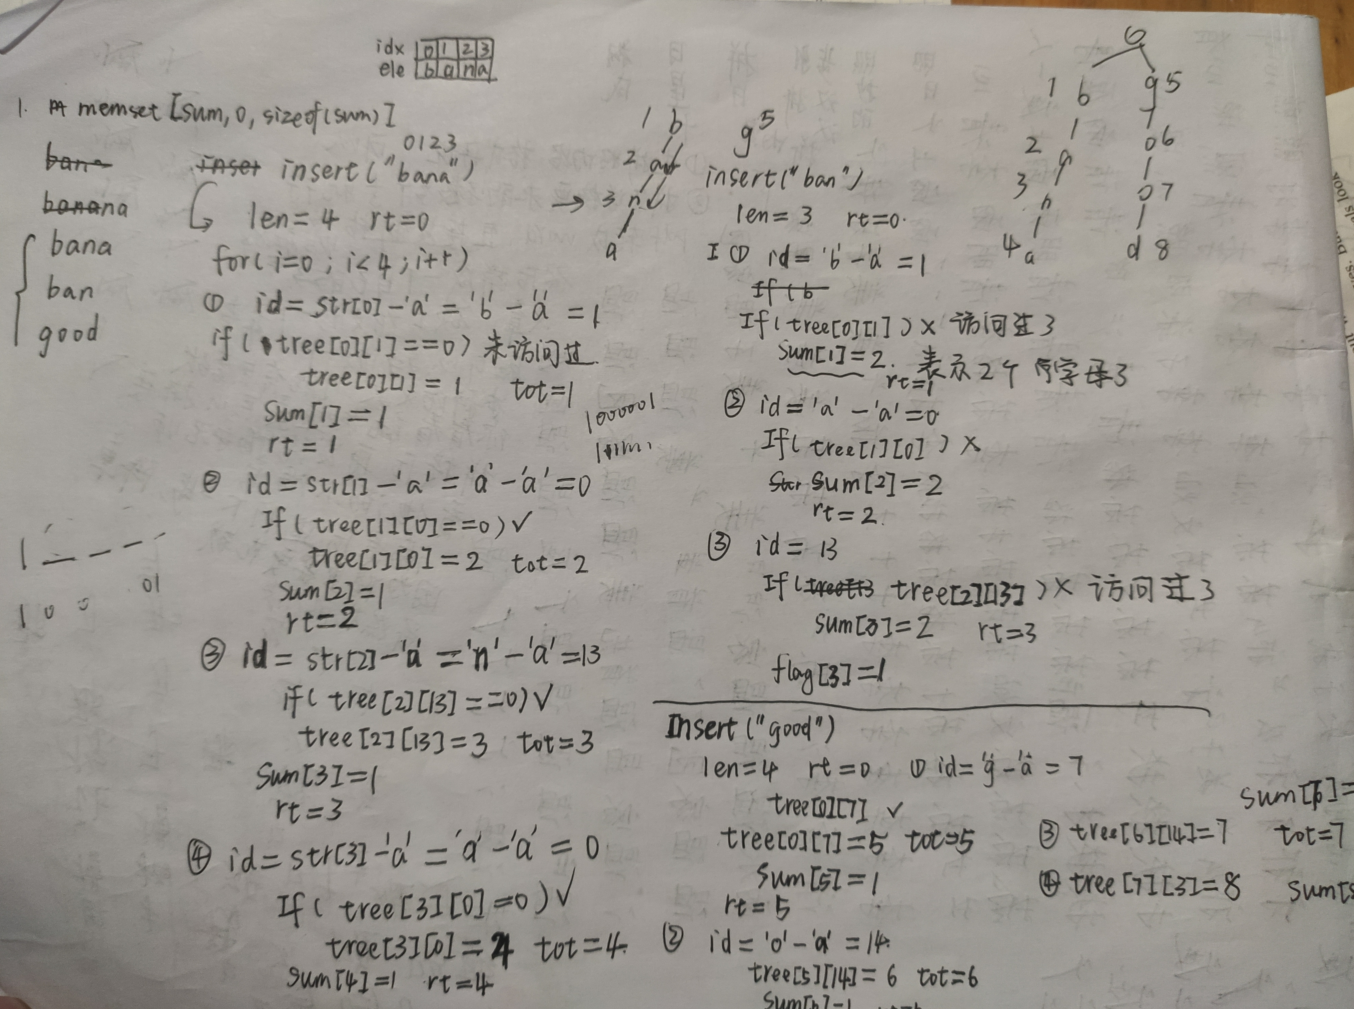 idx 0 1 2 3
ele b a n a
1. memset [sum, 0, sizeof(sum)]
bana
banana
bana
ban
good
0123
insert("bana")
len=4 rt=0
for(i=0; i<4; i++)
① id=str[0]-'a'='b'-'a'=1
if(tree[0][1]==0) 未访问过.
tree[0][1]=1 tot=1
Sum[1]=1
rt=1
② id=str[1]-'a'='a'-'a'=0
If(tree[1][0]==0)✓
tree[1][0]=2 tot=2
Sum[2]=1
rt=2
③ id=str[2]-'a'='n'-'a'=13
if(tree[2][13]==0)✓
tree[2][13]=3 tot=3
Sum[3]=1
rt=3
④ id=str[3]-'a'='a'-'a'=0
If(tree[3][0]=0)✓
tree[3][0]=4 tot=4
sum[4]=1 rt=4
1000001
1
01
1 0 0
1 b
2 a
→ 3 n
a
g5
insert("ban")
len=3 rt=0
I ① id='b'-'a'=1
If(b
If(tree[0][1])× 访问过了
Sum[1]=2. 表示2个
rt=1
② id='a'-'a'=0
If(tree[1][0])×
Sum[2]=2
rt=2
③ id=13
If( tree[2][13])× 访问过了
sum[3]=2 rt=3
flag[3]=1
Insert("good")
len=4 rt=0 ① id='g'-'a'=7
tree[0][7] ✓
tree[0][7]=5 tot=5
Sum[5]=1
rt=5
② id='o'-'a'=14
tree[5][14]=6 tot=6
sum[6]=
③ tree[6][14]=7 tot=7
④ tree[7][3]=8 sum[
1 b g5
2 a o6
3 n o7
4a d 8